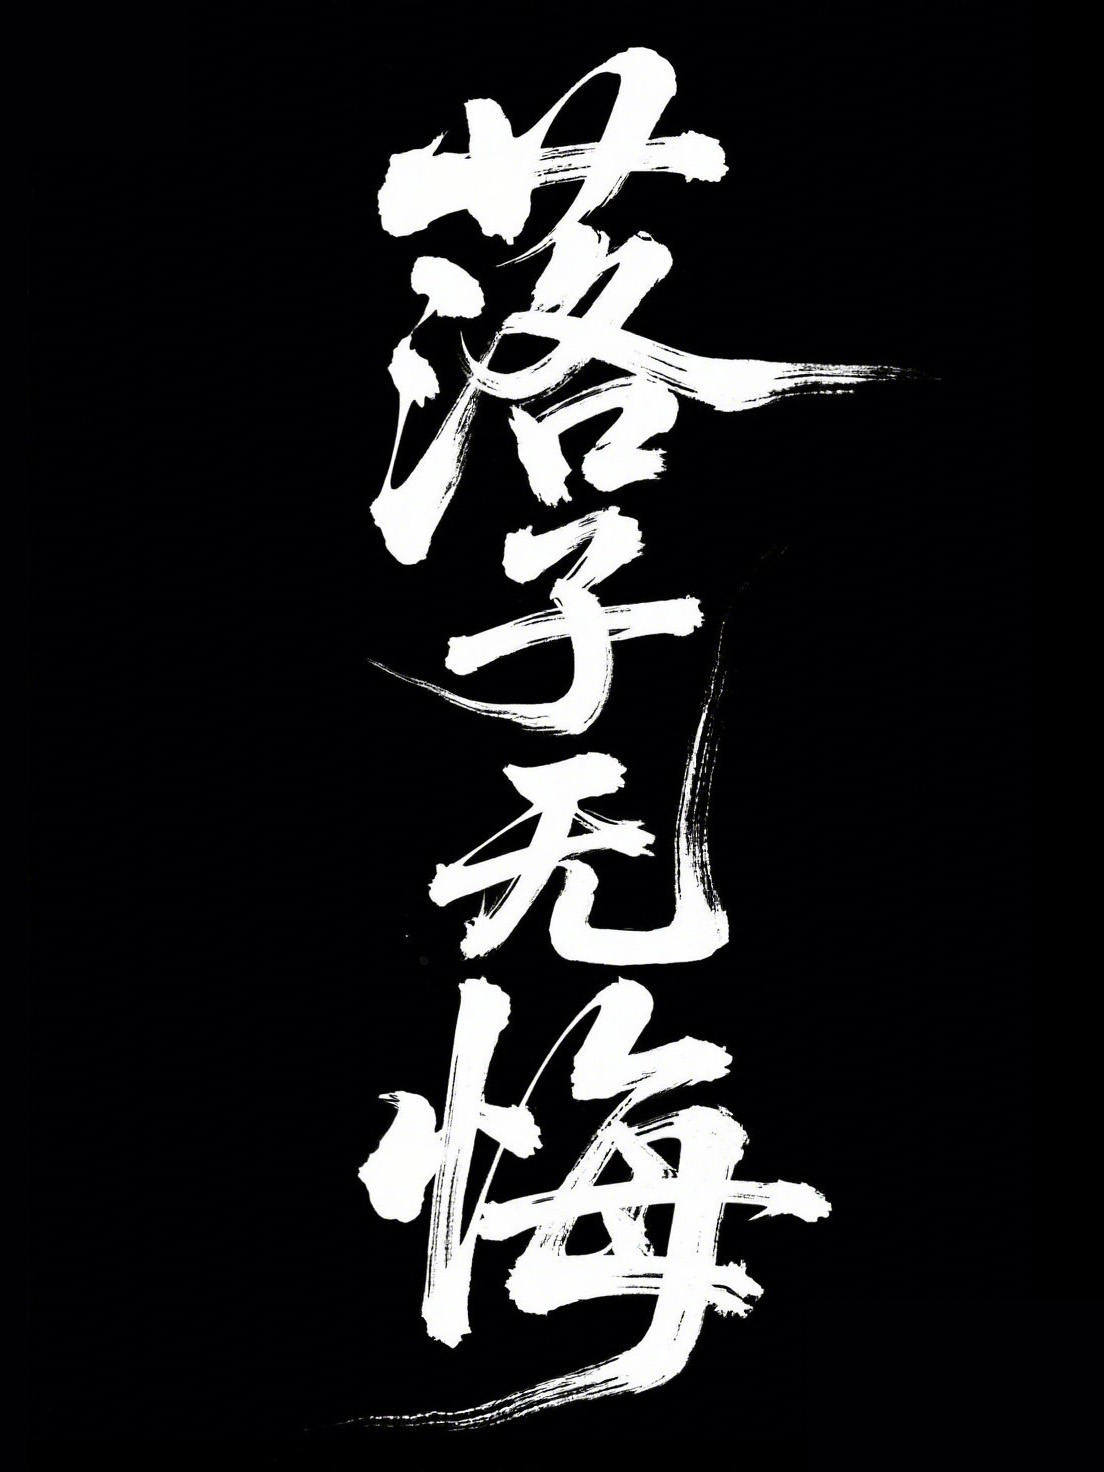 落子无悔